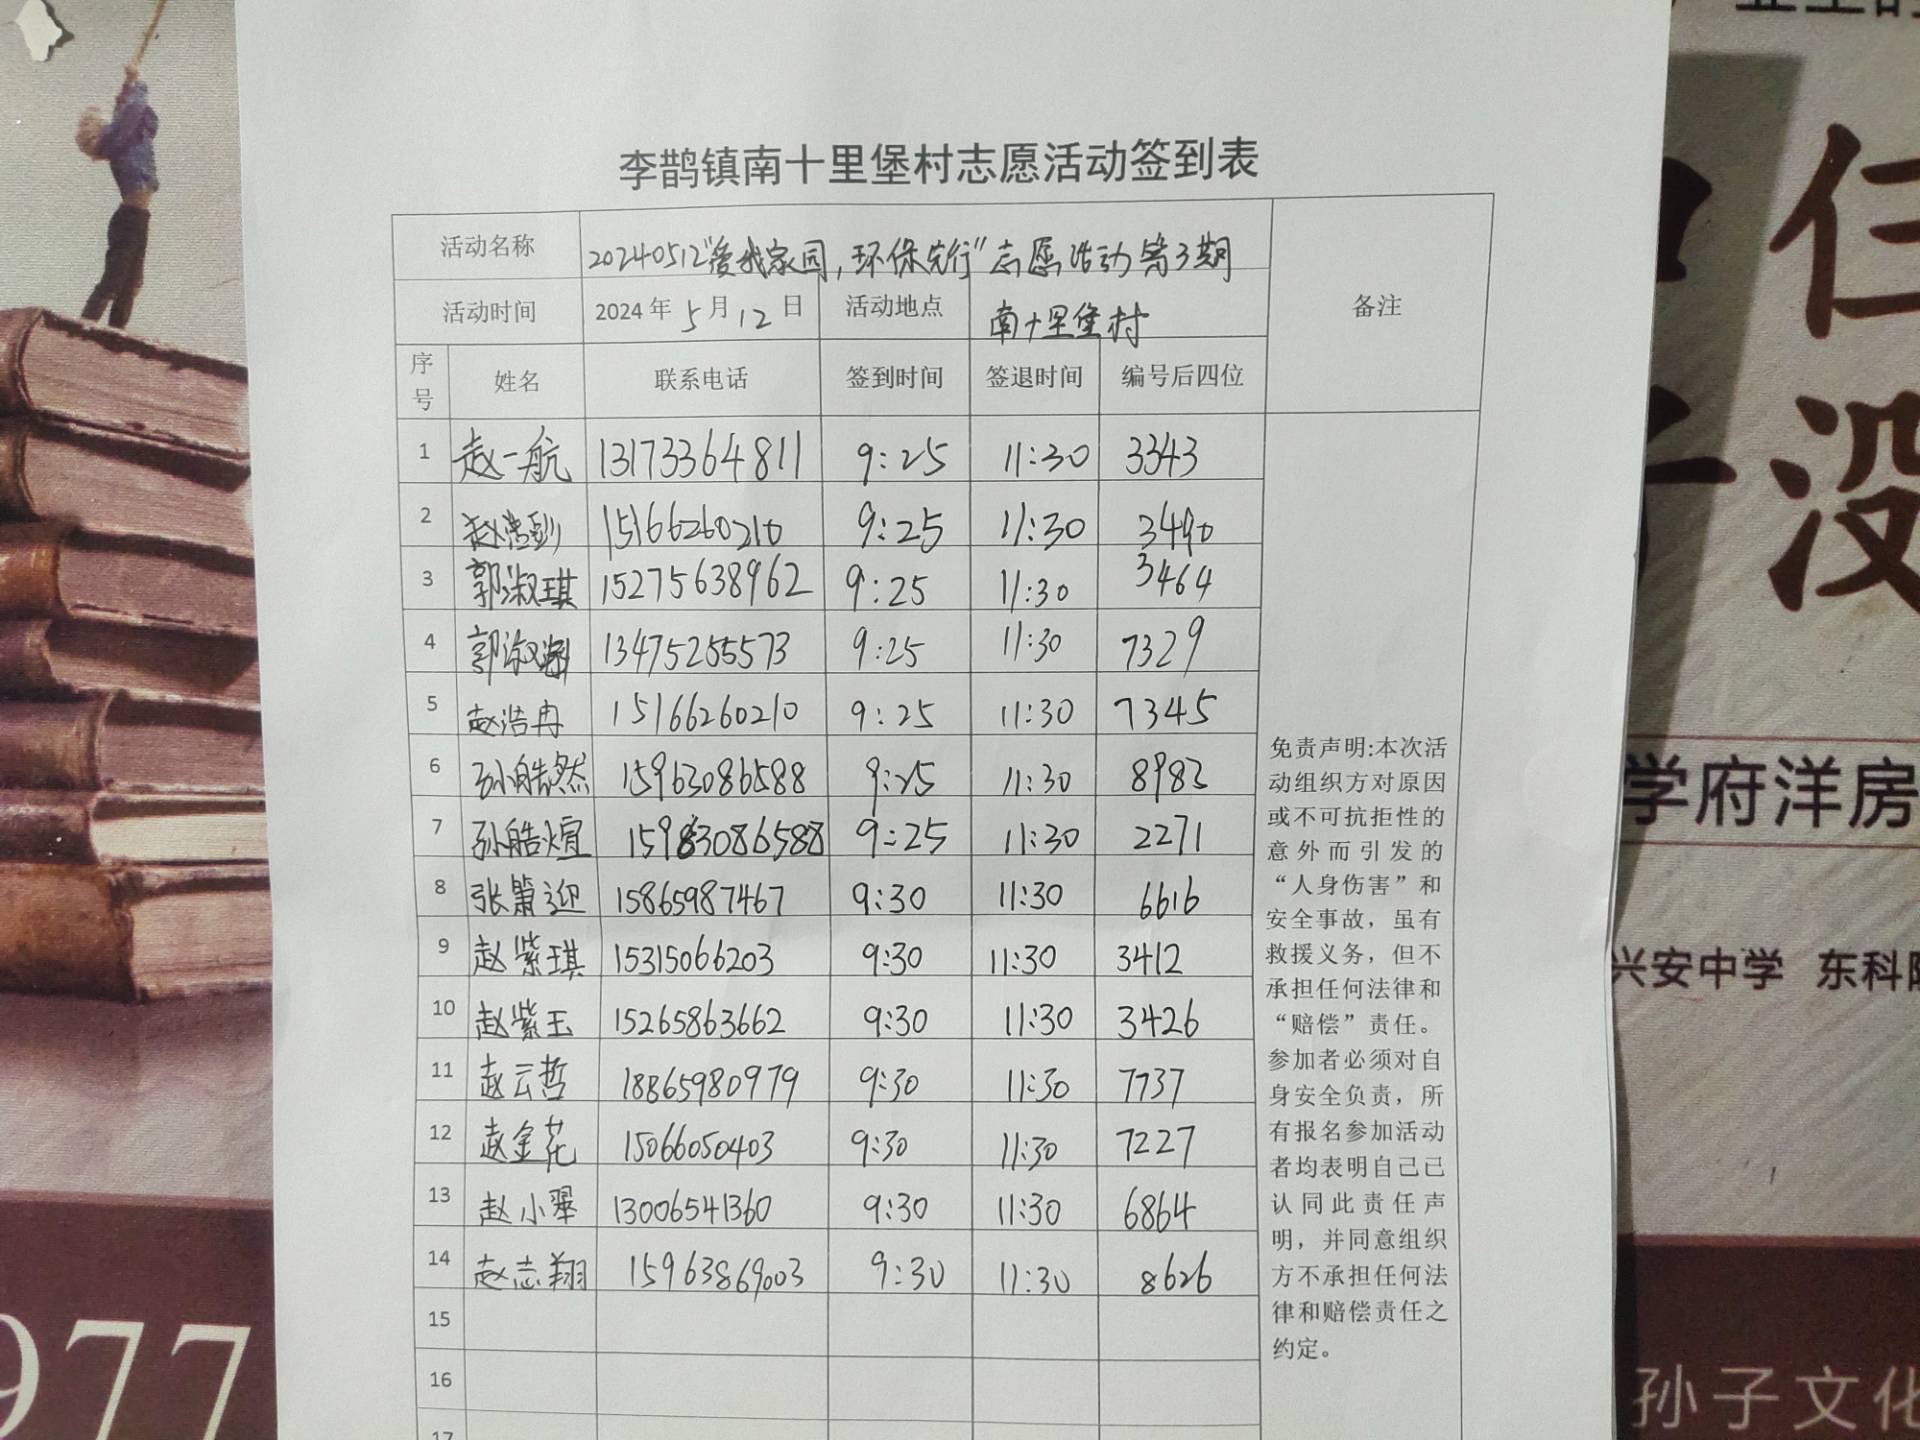 李鹊镇南十里堡村志愿活动签到表
活动名称 20240512"爱我家园，环保先行"志愿活动第3期 备注
活动时间 2024年5月12日 活动地点 南十里堡村
序号 姓名 联系电话 签到时间 签退时间 编号后四位
1 赵一航 13173364811 9:25 11:30 3343
2 赵浩 15166260210 9:25 11:30 3490
3 郭淑琪 15275638962 9:25 11:30 3464
4 郭淑 13475255573 9:25 11:30 7329
5 赵浩冉 15166260210 9:25 11:30 7345
6 孙皓然 15963086588 9:25 11:30 8983
7 孙皓煊 15963086588 9:25 11:30 2271
8 张箫迎 15865987467 9:30 11:30 6616
9 赵紫琪 15315066203 9:30 11:30 3412
10 赵紫玉 15265863662 9:30 11:30 3426
11 赵云哲 18865980979 9:30 11:30 7737
12 赵金花 15066050403 9:30 11:30 7227
13 赵小翠 13006541360 9:30 11:30 6864
14 赵志翔 15963869003 9:30 11:30 8626
15
16
17
免责声明:本次活
动组织方对原因
或不可抗拒性的
意外而引发的
“人身伤害”和
安全事故，虽有
救援义务，但不
承担任何法律和
“赔偿”责任。
参加者必须对自
身安全负责，所
有报名参加活动
者均表明自己已
认同此责任声
明，并同意组织
方不承担任何法
律和赔偿责任之
约定。
没
学府洋房
兴安中学 东科
孙子文化
977